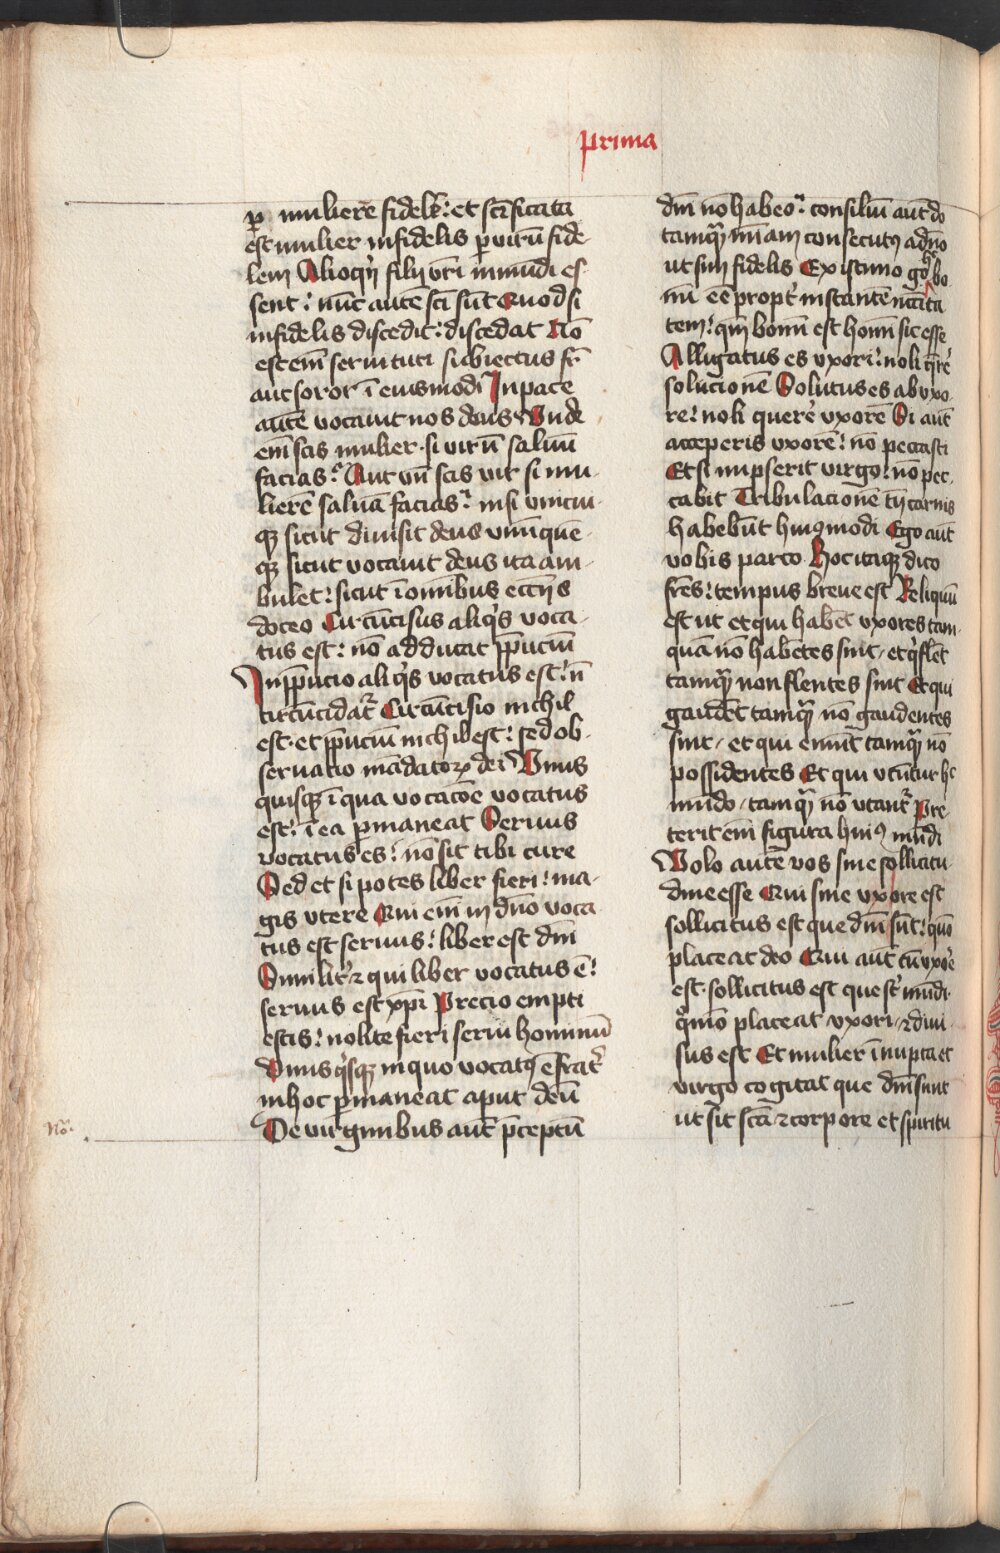 Prima
ꝑ mulierē fidelē: et sc̄ificata
est mulier infidelis ꝑ virū fide
lem Alioqn̄ filij vr̄i inmūdi es
sent: nūc autē sc̄i sūt Quod si
infidelis discedit: discedat Nō
est em̄ seruituti subiectus fr̄
aut soror ī eiusmodi In pace
autē vocauit nos deus Vnde
em̄ scis mulier si virū saluū
facias: Aut vn̄ scis vir si mu
lierē saluā facias: nisi vnicui
qꝫ sicut diuisit deus vnūquē
qꝫ sicut vocauit deus ita am
bulet: sicut ī om̄ibus eccīs
doceo Circūcisus aliqͥs voca
tus est: nō adducat p̄puciū
In p̄pucio aliqͥs vocatus est: n̄
circūcidat᷑ Circūcisio nichil
est et p̄puciū nichil est: sed ob
seruatio mādatoꝝ dei Vnus
quisqꝫ ī qua vocacōe vocatus
est: ī ea ꝑmaneat Seruus
vocatus es: nō sit tibi cure
Sed et si potes liber fieri: ma
gis vtere Qui em̄ in dn̄o voca
tus est seruus: liber est dn̄i
Similit᷑ ⁊ qui liber vocatus ē:
seruus est xp̄i Precio empti
estis: nolite fieri serui hominū
Vnusqͥsqꝫ in quo vocatꝰ ē frat᷑
in hoc ꝑmaneat aput deū
No.
De virginibus aut̄ p̄ceptū
dn̄i nō habeo: consiliū aut̄ do
tamqꝫ mīam consecutꝰ a dn̄o
ut sim fidelis Existimo g̊ hc̄ bo
nū eē propt᷑ instantē ncc̄ita
tem: qm̄ bonū est homī sic esse
Alligatus es vxori: noli qr̄e᷑
solucionē Solutus es ab vxo
re: noli quere᷑ vxorē Si aut̄
acceperis vxorē: nō peccasti
Et si nupserit virgo: nō pec
cabit Tribulacionē tn̄ carnis
habebūt huiꝰmodi Ego aut̄
vobis parco Hoc itaqꝫ dico
fr̄es: tempus breue est Reliquū
est ut et qui habēt vxores tam
quā nō habētes sint et qͥ flēt
tamqꝫ non flentes sint Et qui
gaudēt tamqꝫ nō gaudentes
sint et qui emūt tamqꝫ nō
possidentes Et qui vtūtur hͦ
mūdo tamqꝫ nō vtant᷑ Pre
terit em̄ figura huiꝰ mūdi
Volo autē vos sine sollicitu
dine esse Qui sine vxore est
sollicitus est que dn̄i sūt: quō
placeat deo Qui aut̄ cū vxor̄e
est sollicitus est que st̄ mūdi
qͦmō placeat vxori ⁊ diui
sus est Et mulier īnupta et
virgo cogitat que dn̄i sunt
ut sit sc̄a ⁊ corpore et spiritu